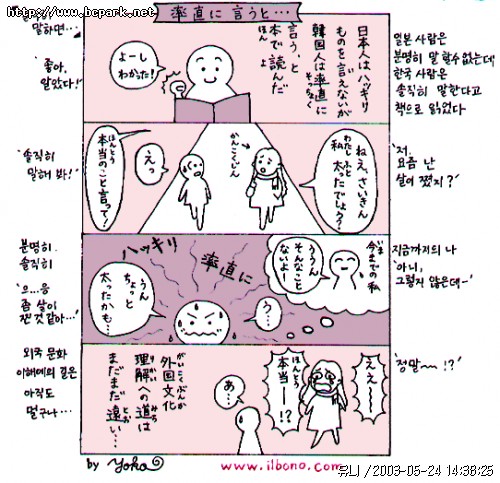 http://www.bcpark.net
말하면...
率直に言うと…
日本人はハッキリ
ものを言えないが
韓国人は率直に
そっちょく
言う、と
本で読んだ
ほん よ
よーし
わかった!
'좋아,
알았다!'
일본 사람은
분명히 말 할수 없는데
한국 사람은
솔직히 말한다고
책으로 읽었다
ねぇ、さいきん
私、太ったでしょう?
わたし ふと
かんこくじん
えっ
本当のこと言って!
ほんとう
'솔직히
말해 봐!'
'저,
요즘 난
살이 쪘지?'
今までの私
いま
ううん
そんなこと
ないよー
う…
ハッキリ
率直に
うん
ちょっと
太ったかも…
분명히.
솔직히
'으...응
좀 살이
찐것 같아...'
지금까지의 나
'아니,
그렇지 않은데-'
ええ〜
本当ー!?
ほんとう
あ…
外国文化
がいこくぶんか
理解への道は
りかい みち
まだまだ遠い…
とお
외국 문화
이해에의 길은
아직도
멀구나...
'정말~~ !?'
by Yoko
www.ilbono.com
유니 / 2003-05-24 14:38:25